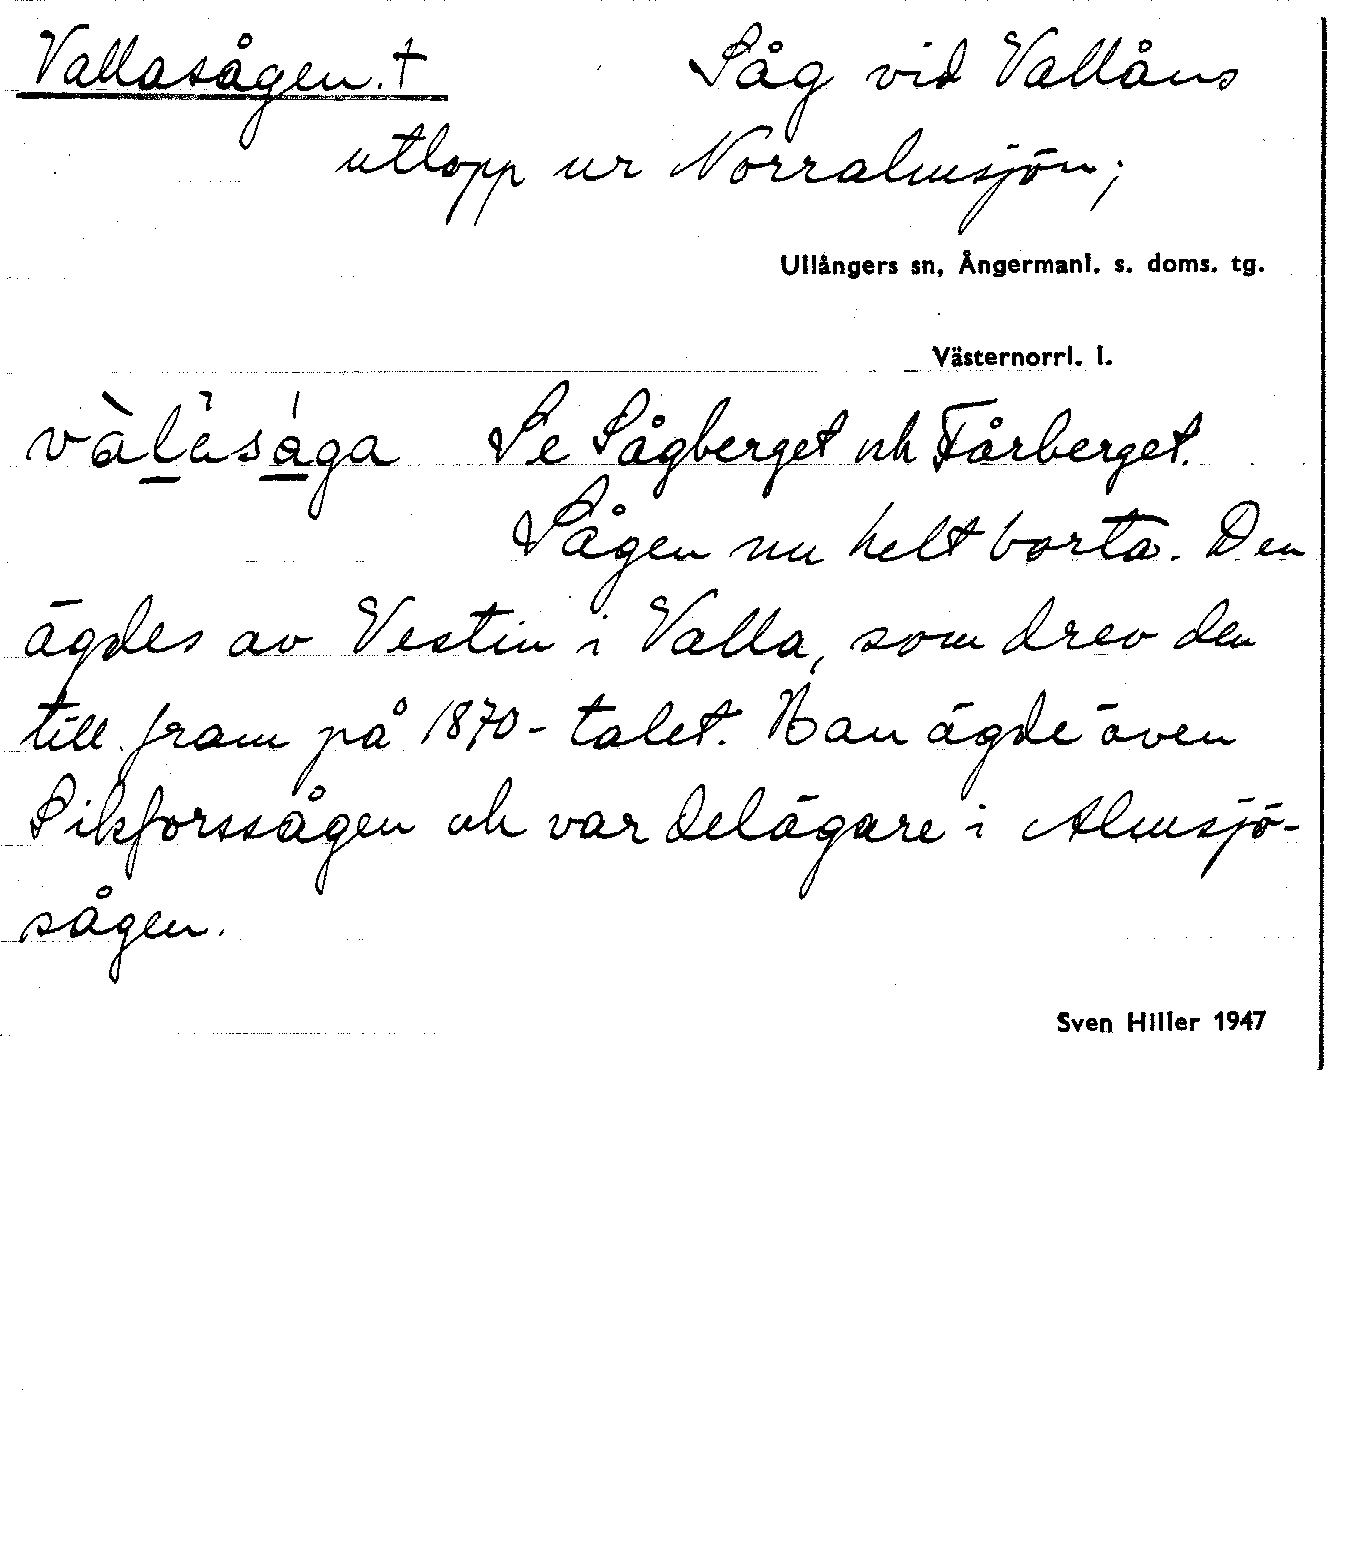 Vallasågen. † Såg vid Vallåns
utlopp ur Norralmsjön;
Ullångers sn, Ångermanl. s. doms. tg.
Västernorrl. l.
Se Sågberget och Fårberget.
Sågen nu helt borta. Den
ägdes av Vestin i Valla, som drev den
till fram på 1870-talet. Han ägde även
Sikforssågen och var delägare i Almsjö-
sågen.
Sven Hiller 1947